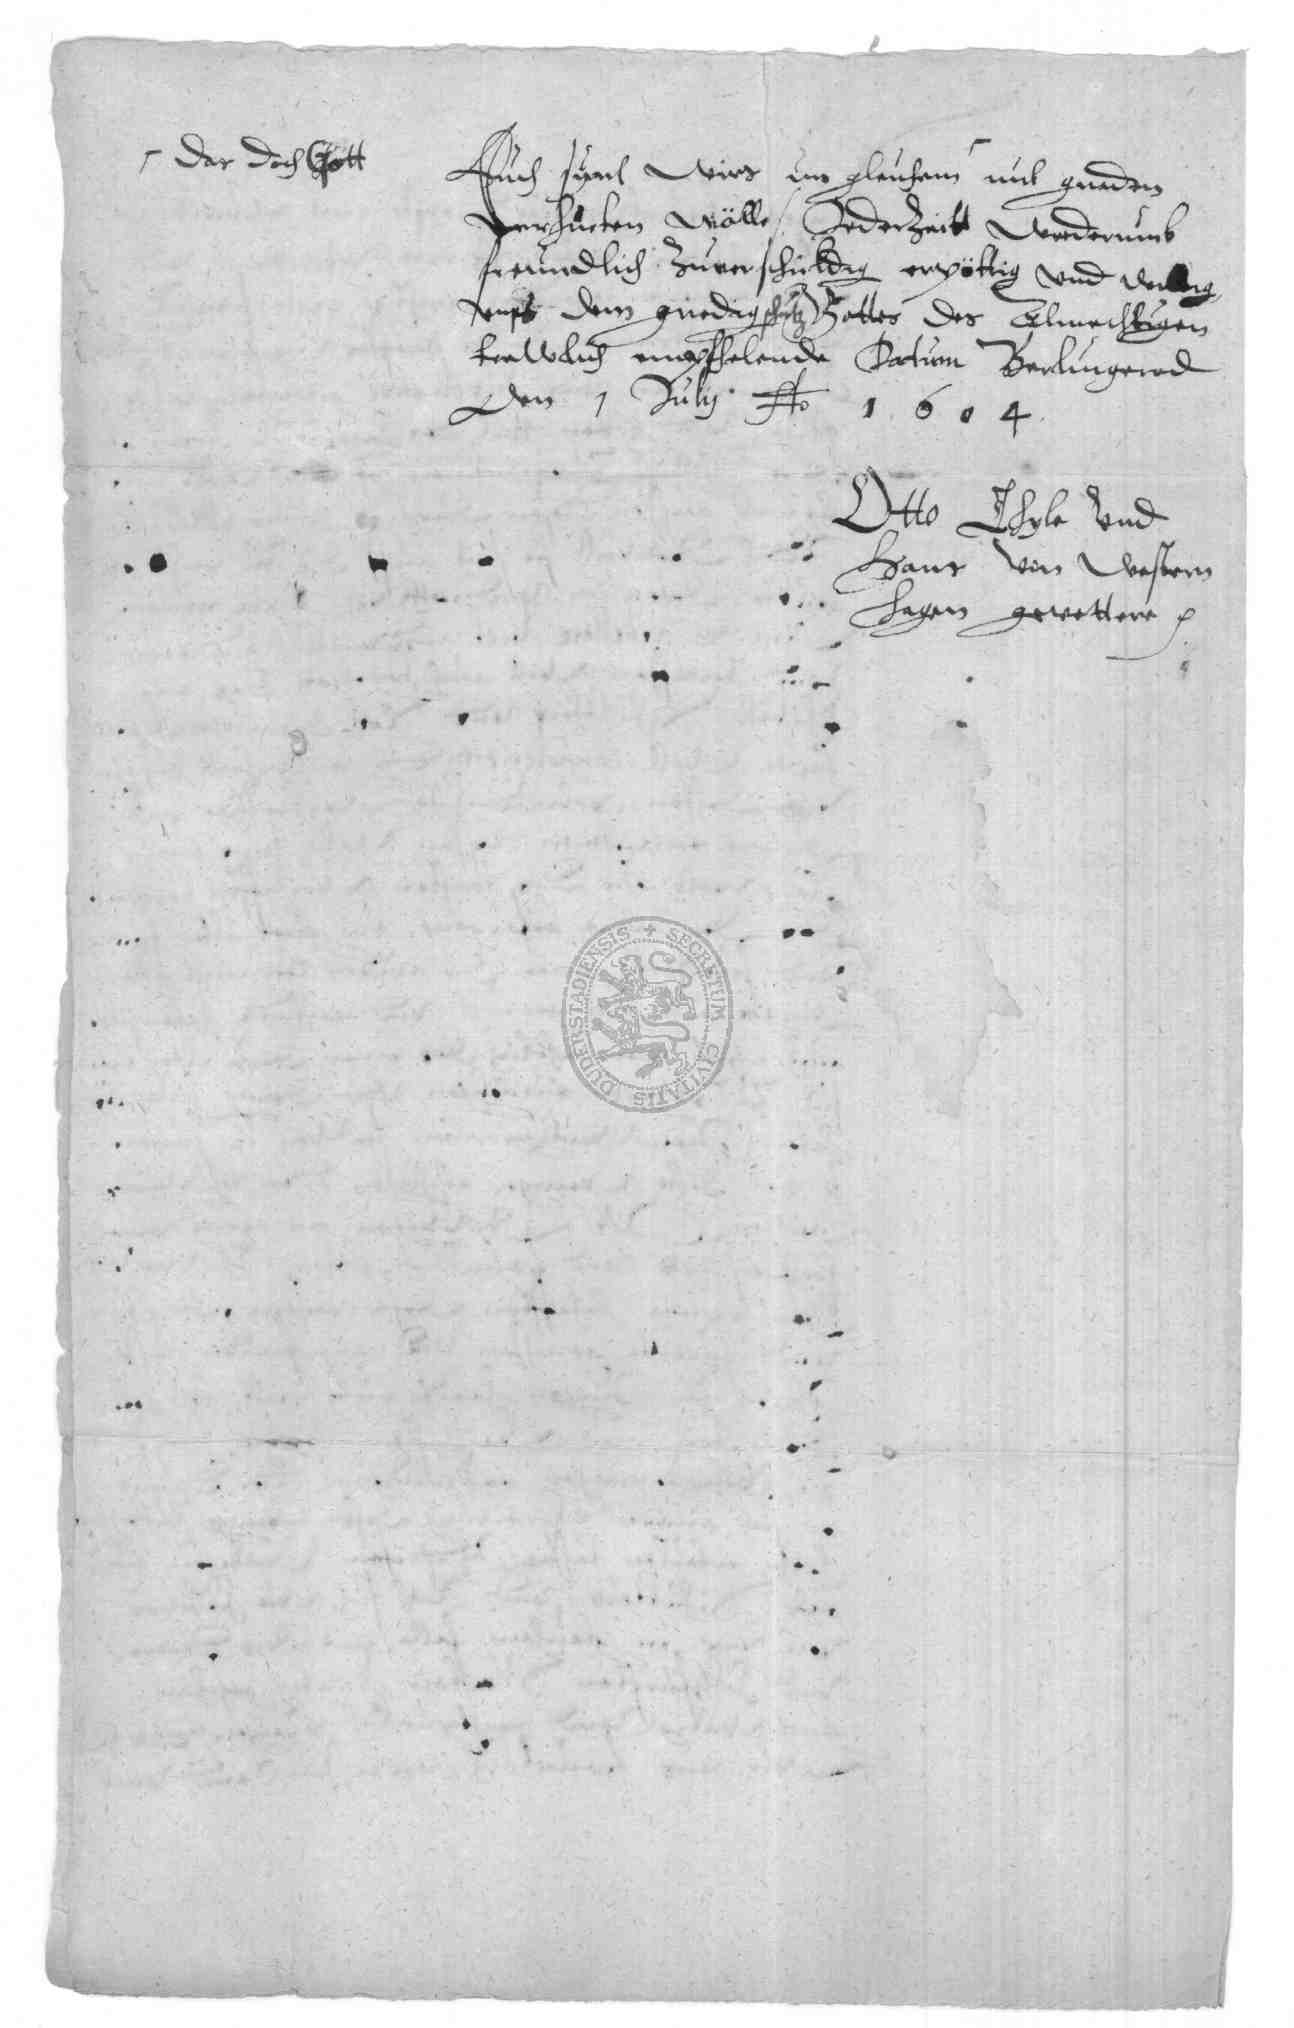 ⌜ Das doch Gott
Auch seint wirs im gleichem ⌜ mit gnaden
verhueten wölle / Jederzeitt wiederumb
freundlich zuverschuldig erpöttig und willig
unß dem gnedig schutz Gottes des Almechtigen
trewlich empfhelende Datum Berlingerod
den 1 July Ao 1604
Otto Thyle Und
Hans von Western
hagen gevettere
SECRETUM CIVITATIS DUDERSTADIENSIS